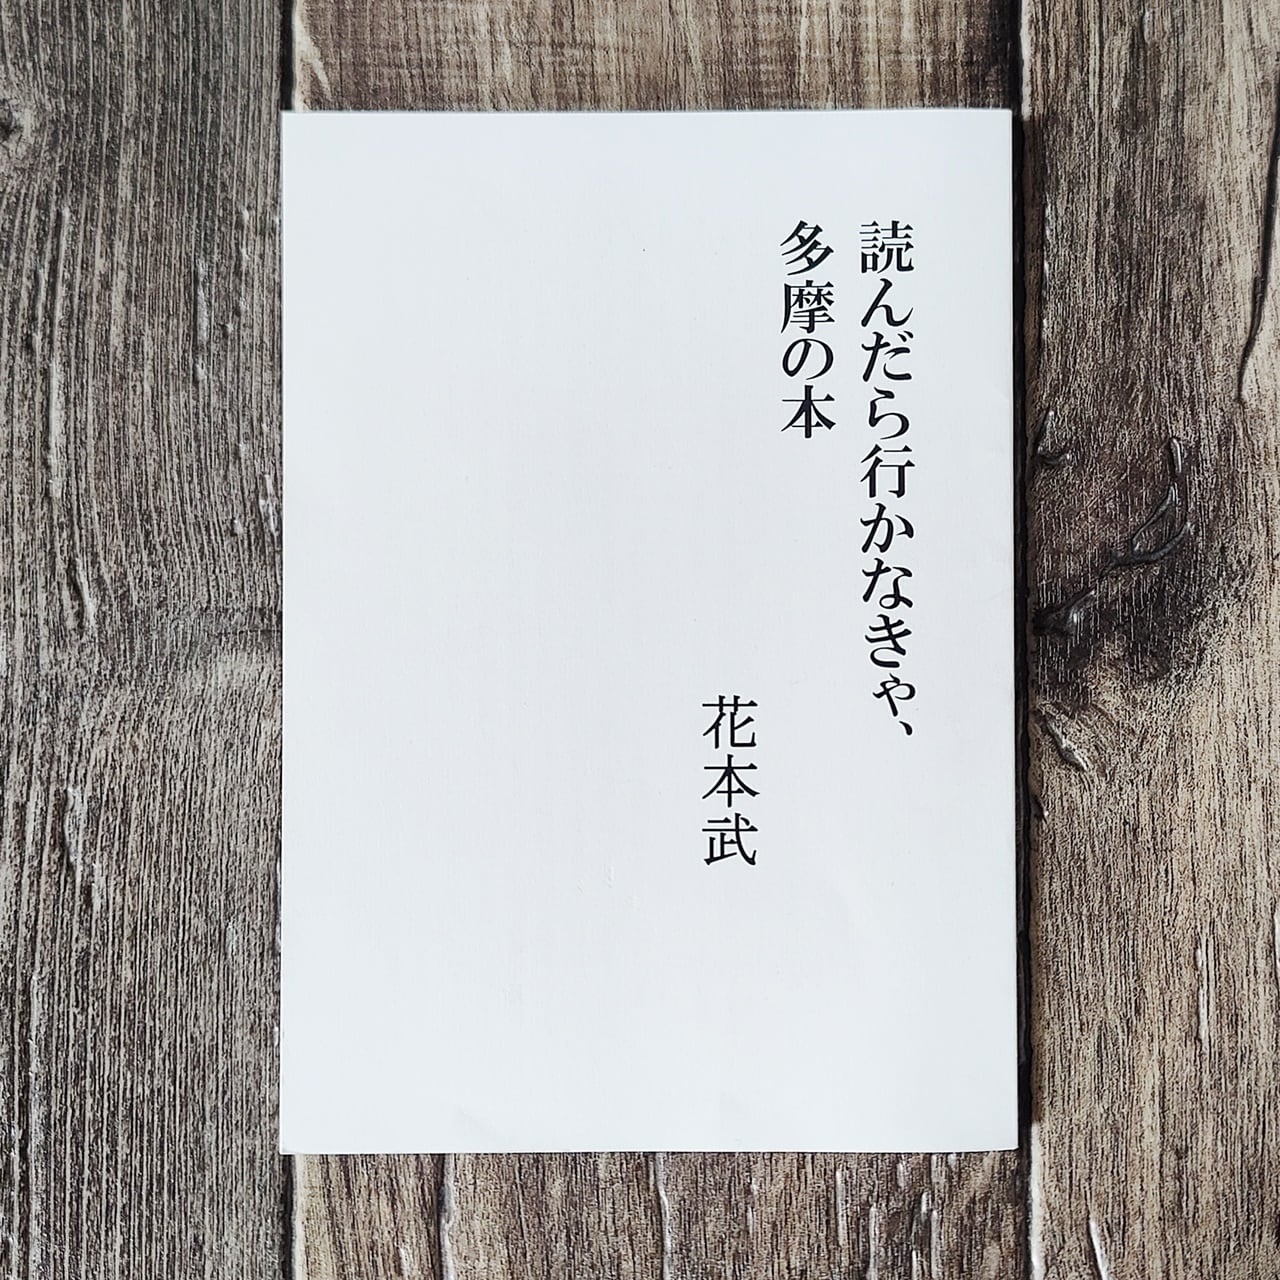 読んだら行かなきゃ、
多摩の本
花本武